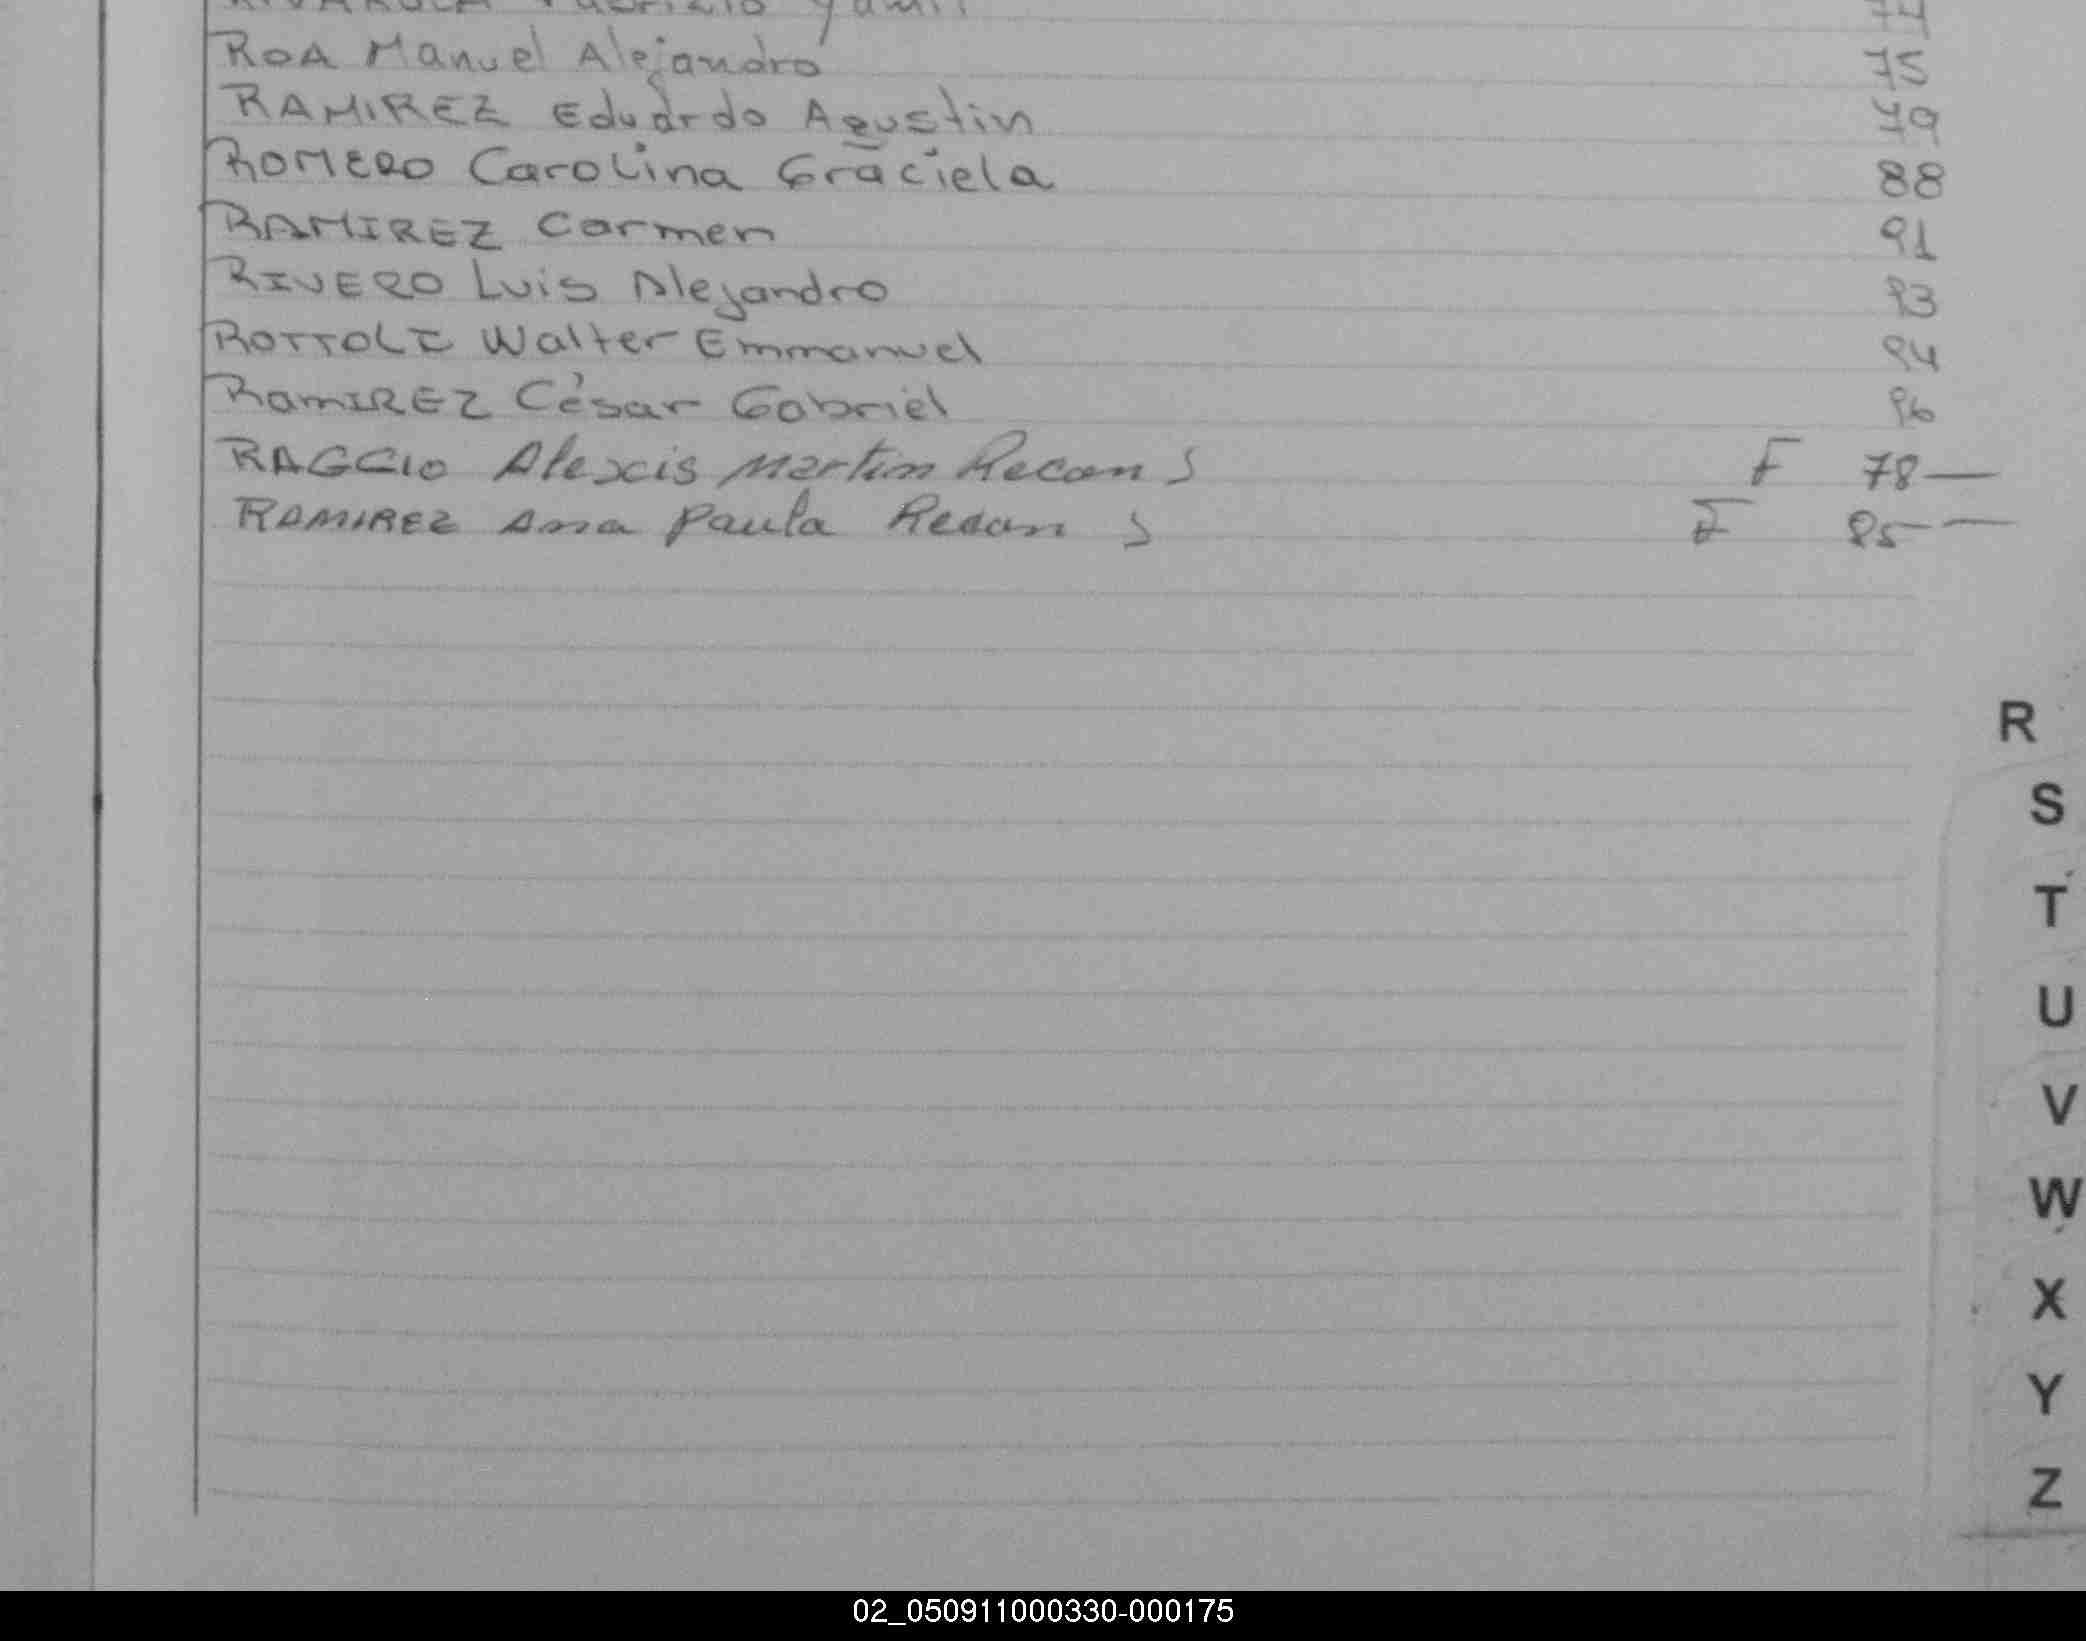 RIVAROLA Fabrizio Yamil 74
ROA Manuel Alejandro 75
RAMIREZ Eduardo Agustin 79
ROMERO Carolina Graciela 88
RAMIREZ Carmen 91
RIVERO Luis Alejandro 93
ROTTOLI Walter Emmanuel 94
RamIREZ César Gabriel 96
RAGGIO Alexcis Martin Recon S F 78—
RAMIREZ Ana Paula Recon S F 85—
R
S
T
U
V
W
X
Y
Z
02_050911000330-000175